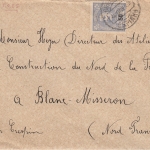 Monsieur Hoyer Directeur des Ateliers
Construction du Nord de la Fr
a Blanc Misseron
Crespin (Nord France